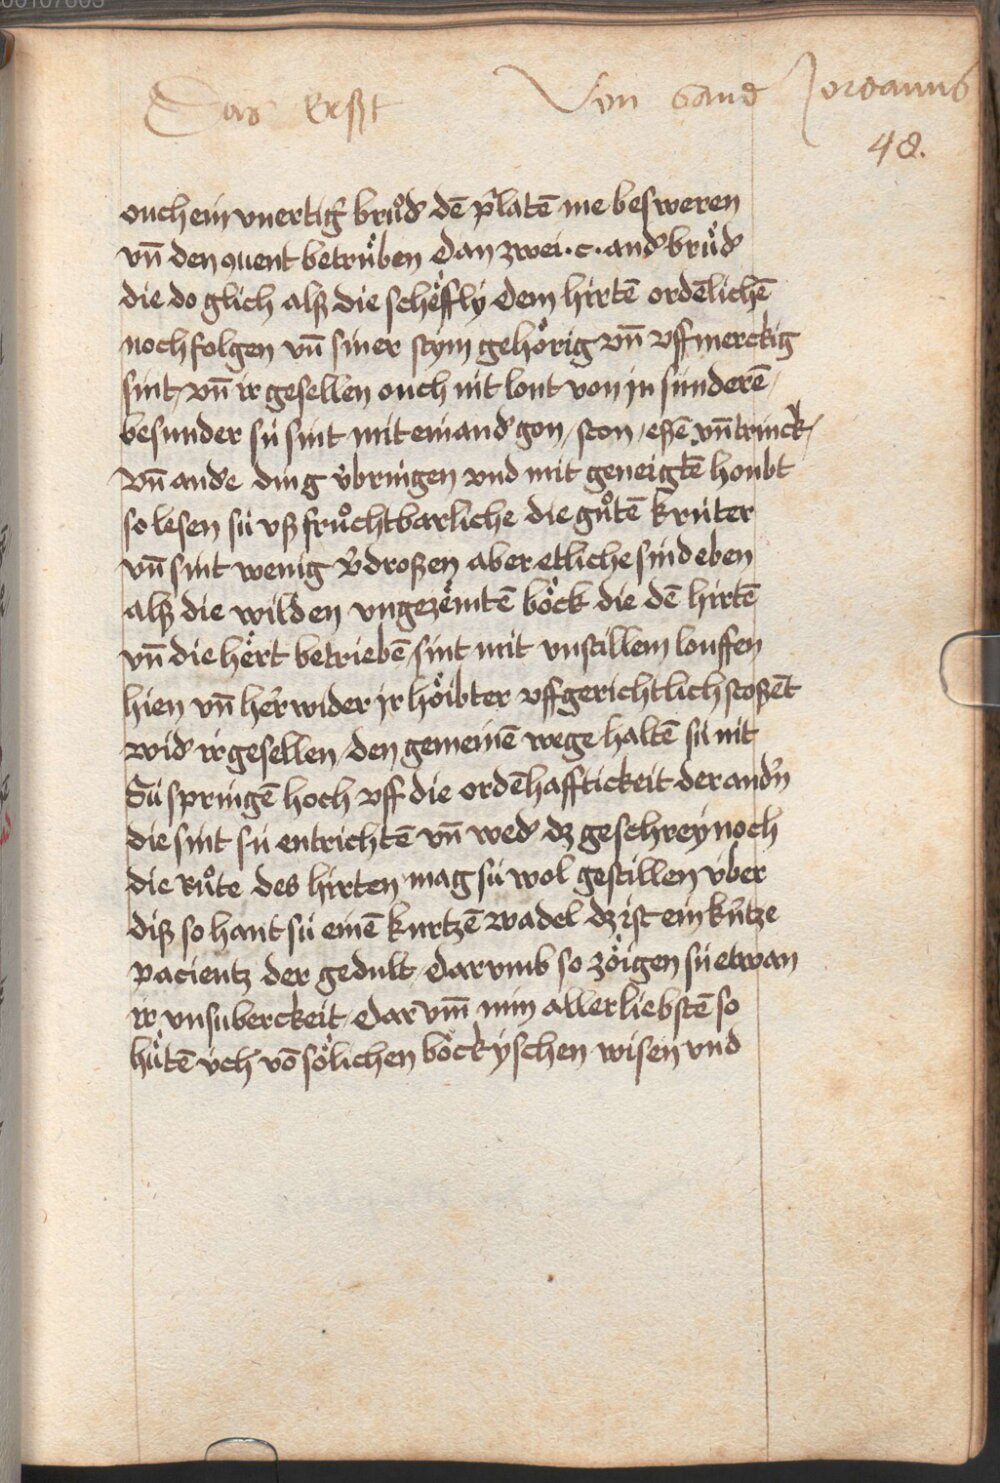 Das Erst Von Sand Jordanus
48.
ouch ein vnertig bruͦd' dē p'latē me besweren
vn̄ den ꝯuent betruͤben dan zwei · c · and' bruͤd'
die do glich alß die scheͤffly dem hirtē ordēlichē
noch folgen vn̄ siner stym gehoͤrig vn̄ vffmerckig
sint / vn̄ ir gesellen ouch nit lont von jn sunderē /
besunder sú sint mit einand' gon / ston / eßē vn̄ trinck /
vn̄ and'e ding v̓bringen vnd mit geneigtē houbt
so lesen sú vß fruͦchtbarliche die guͦtē krúter
vn̄ sint wenig v̓droßen aber etliche sind eben
alß die wilden vngezeͤmtē boͤck die dē hirtē
vn̄ die heͤrt betriebē sint mit vnstillem louffen
hien vn̄ her wider jr hoͤibter vffgerichtlich stoßēt
wid' ir gesellen / den gemeinē wege haltē sú nit
Sú springē hoch vff die ordēhafftickeit der and'n
die sint sú entrichtē vn̄ wed' dz geschrey noch
die Ruͦte des hirten mag sú wol gestillen v́ber
diß so hant sú einē kurtzē wadel dz ist ein kurtze
pacientz der gedult / darvmb so zoͤigen sú etwan
ir vnsuberckeit / dar vm̄ min aller liebstē so
huͤtē v́ch vō soͤlichen boͤckyschen wisen vnd